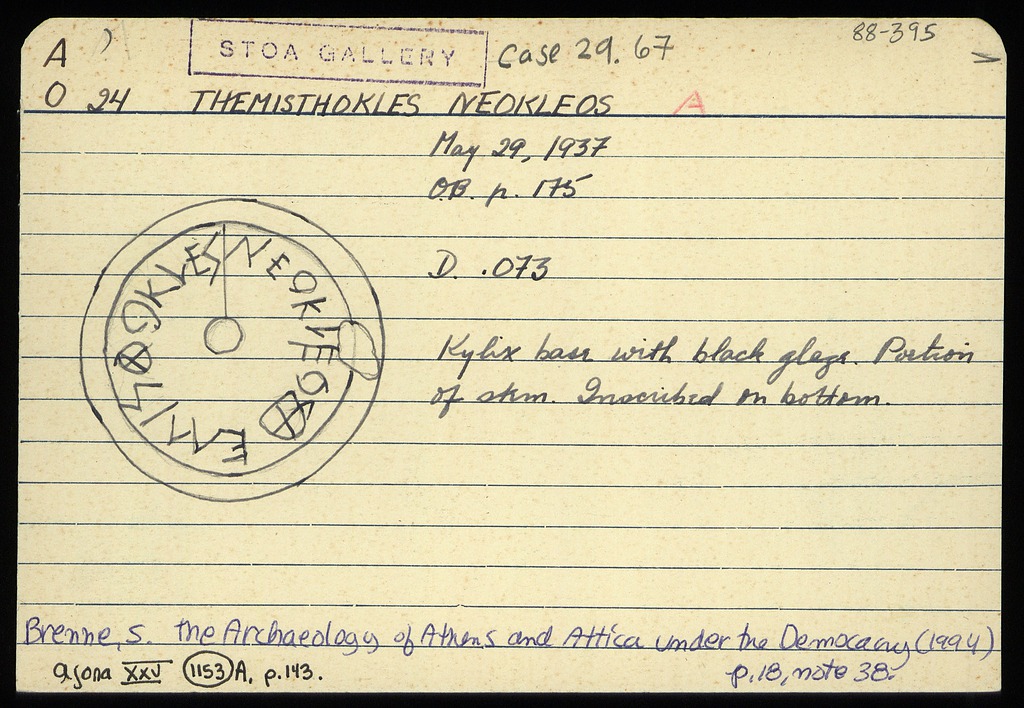 A
STOA GALLERY Case 29. 67 88-395
O 24 THEMISTHOKLES NEOKLEOS A
May 29, 1937
OB. p. 175
D. .073
Kylix base with black glaze. Portion
of stem. Inscribed on bottom.
Brenne, S. the Archaeology of Athens and Attica under the Democracy (1994)
p.18, note 38.
Agora XXV 1153 A, p.143.